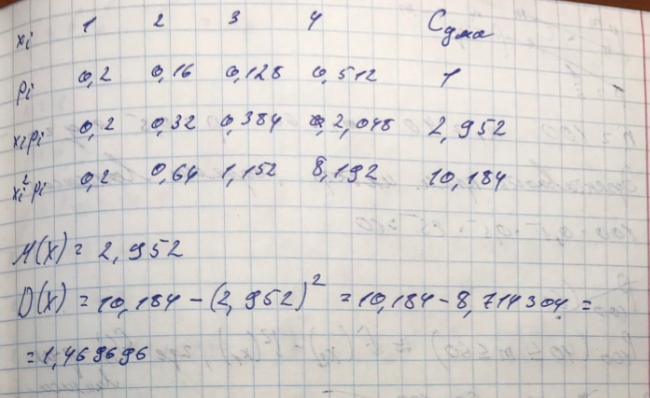 xi 1 2 3 4 Сума
pi 0,2 0,16 0,128 0,512 1
xipi 0,2 0,32 0,384 2,048 2,952
xi²pi 0,2 0,64 1,152 8,192 10,184
M(X) = 2,952
D(X) = 10,184 - (2,952)² = 10,184 - 8,714304 =
= 1,469696